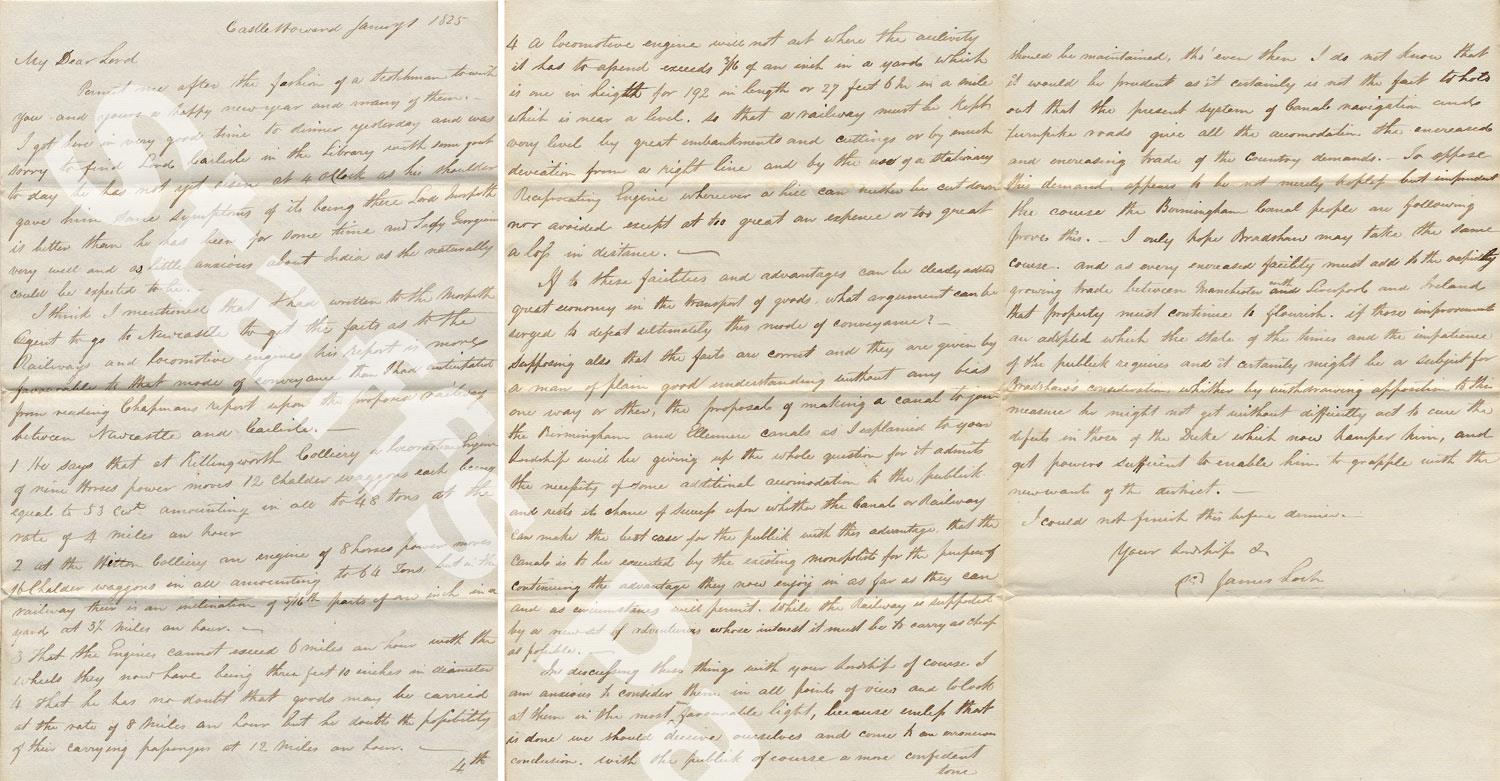 Castle Howard Janury 1 1825
My Dear Lord
Permit me after the fashion of a Scotchman to wish
you and yours a happy new year and many of them. —
I got here in very good time to dinner yesterday and was
sorry to find Lord Carlisle in the Library with some gout
to day he has not yet risen at 4 oClock as his shoulder
gave him some symptoms of its being there Lord Morpeth
is better than he has been for some time and Lady Georgiana
very well and as little anxious about India as she naturally
could be expected to be.
I think I mentioned that I had written to the Morpeth
Agent to go to Newcastle to get the facts as to the
Railways and locomotive engines his report is more
favourable to that mode of conveyance than I had anticipated
from reading Chapmans report upon the proposed railway
between Newcastle and Carlisle. —
1 He says that at Killingworth Colliery a locomotive Engine
of nine Horses power moves 12 Chalder waggons each being
equal to 53 Cwt amounting in all to 48 tons at the
rate of 4 miles an hour
2 at the Hetton Colliery an engine of 8 horses power moves
16 Chalder waggons in all amounting to 64 Tons but in the
railway there is an inclination of 5/16th parts of an inch in a
yard at 3½ miles an hour. —
3 That the Engines cannot exceed 6 miles an hour with the
wheels they now have being three feet 10 inches in diameter
4 that he has no doubt that goods may be carried
at the rate of 8 Miles an hour but he doubts the possibility
of their carrying passengers at 12 Miles an hour. —
4th
4 A locomotive engine will not act where the aclivity
it has to asend exceeds 3/16 of an inch in a yard which
is one in heigth for 192 in length or 27 feet 6 In in a mile
which is near a level. so that a railway must be kept
very level by great embankments and cuttings or by much
deviation from a right line and by the use of a stationary
Reciprocating Engine wherever a hill can neither be cut down
nor avoided except at too great an expence or too great
a loss in distance. —
If to these facilities and advantages can be clearly added
great economy in the transport of goods. what argument can be
urged to defeat ultimately this mode of conveyance? —
Supposing also that the facts are correct and they are given by
a man of plain good understanding without any bias
one way or other, the proposals of making a canal to join
the Birmingham and Ellesmere canals as I explained to your
Lordship will be giving up the whole question for it admits
the necessity of some additional accomodation to the publick
and rests its chance of success upon whether the Canal or Railway
can make the best case for the publick with this advantage. that the
Canals is to be executed by the existing monopolists for the purpose of
continuing the advantage they now enjoy in as far as they can
and as circumstances will permit. while the Railway is supported
by a new set of adventurers whose interest it must be to carry as cheap
as possible. —
In discussing these things with your Lordship of course I
am anxious to consider them in all points of view and to look
at them in the most favourable light, because unless that
is done we should deceive ourselves and come to an erroneous
conclusion. with the publick of course a more confident
tone
should be maintained, tho' even then I do not know that
it would be prudent as it certainly is not the fact to hold
out that the present system of Canal navigation and
turnpike roads give all the accomodation the encreased
and encreasing trade of the Country demands. — To oppose
this demand appears to be not merely hopless but imprudent
the course the Birmingham Canal people are following
proves this. — I only hope Bradshaw may take the same
course. and as every encreased facility must add to the rapidly
growing trade between Manchester with Liverpool and Ireland
that property must continue to flourish. if those improvements
are adopted which the state of the times and the impatience
of the publick requires and it certainly might be a subject for
Bradshaw's consideration whether by withdrawing opposition to this
measure he might not get without difficulty act to cure the
defects in those of the Duke which now hamper him, and
get powers sufficient to enable him to grapple with the
new wants of the district. —
I could not finish this before dinner. —
Your Lordships &
James Loch